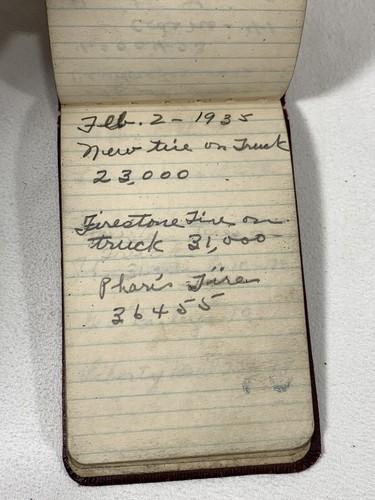 Feb. 2 - 1935
New tire on Truck
23,000
Firestone Tire on
truck 31,000
Pharis Tire
36455